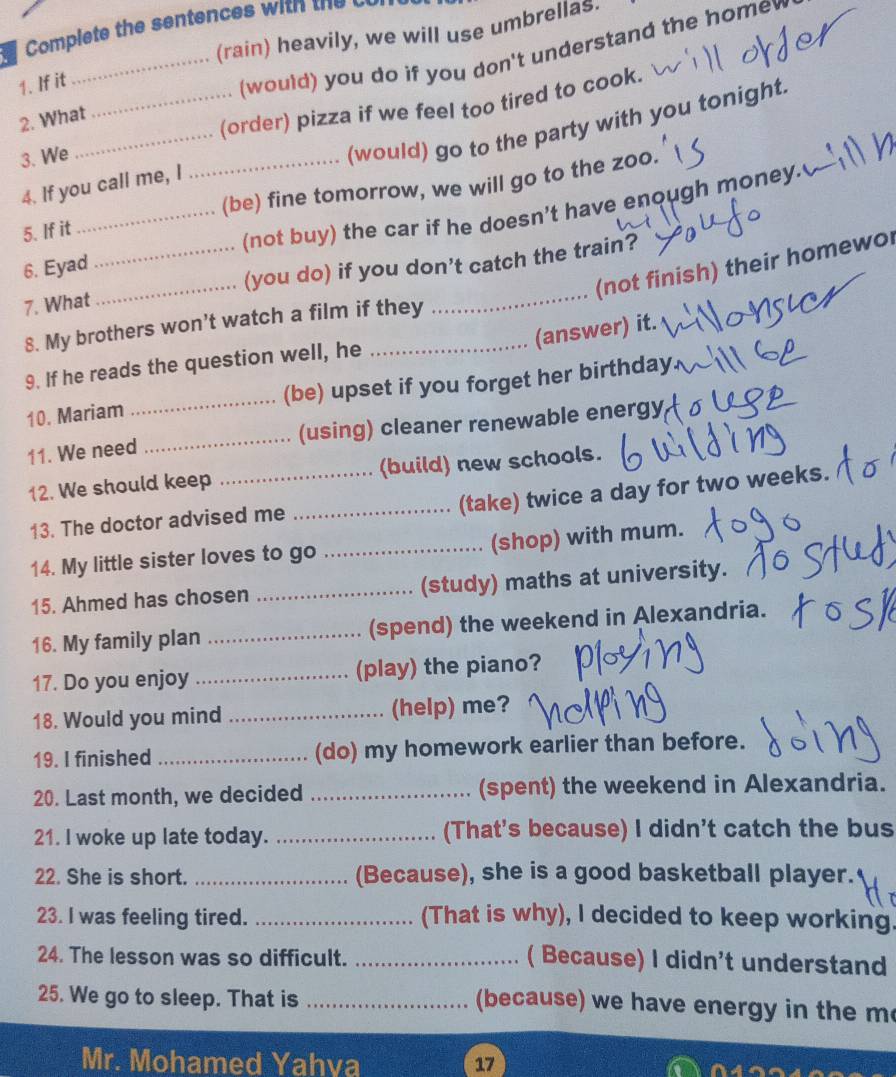 Complete the sentences with the
1. If it ........................ (rain) heavily, we will use umbrellas.
2. What ........................ (would) you do if you don't understand the homew
3. We ........................ (order) pizza if we feel too tired to cook. will order
4. If you call me, I ........................ (would) go to the party with you tonight.
5. If it ........................ (be) fine tomorrow, we will go to the zoo. is
6. Eyad ........................ (not buy) the car if he doesn't have enough money. will n
7. What ........................ (you do) if you don't catch the train? will you do
8. My brothers won't watch a film if they ........................ (not finish) their homewor
9. If he reads the question well, he ........................ (answer) it. will answer
10. Mariam ........................ (be) upset if you forget her birthday. will be
11. We need ........................ (using) cleaner renewable energy. to use
12. We should keep ........................ (build) new schools. building
13. The doctor advised me ........................ (take) twice a day for two weeks. to
14. My little sister loves to go ........................ (shop) with mum. to go
15. Ahmed has chosen ........................ (study) maths at university. to study
16. My family plan ........................ (spend) the weekend in Alexandria. to sp
17. Do you enjoy ........................ (play) the piano? playing
18. Would you mind ........................ (help) me? helping
19. I finished ........................ (do) my homework earlier than before. doing
20. Last month, we decided ........................ (spent) the weekend in Alexandria.
21. I woke up late today. ........................ (That's because) I didn't catch the bus
22. She is short. ........................ (Because), she is a good basketball player.
23. I was feeling tired. ........................ (That is why), I decided to keep working.
24. The lesson was so difficult. ........................ ( Because) I didn't understand
25. We go to sleep. That is ........................ (because) we have energy in the mo
Mr. Mohamed Yahya 17